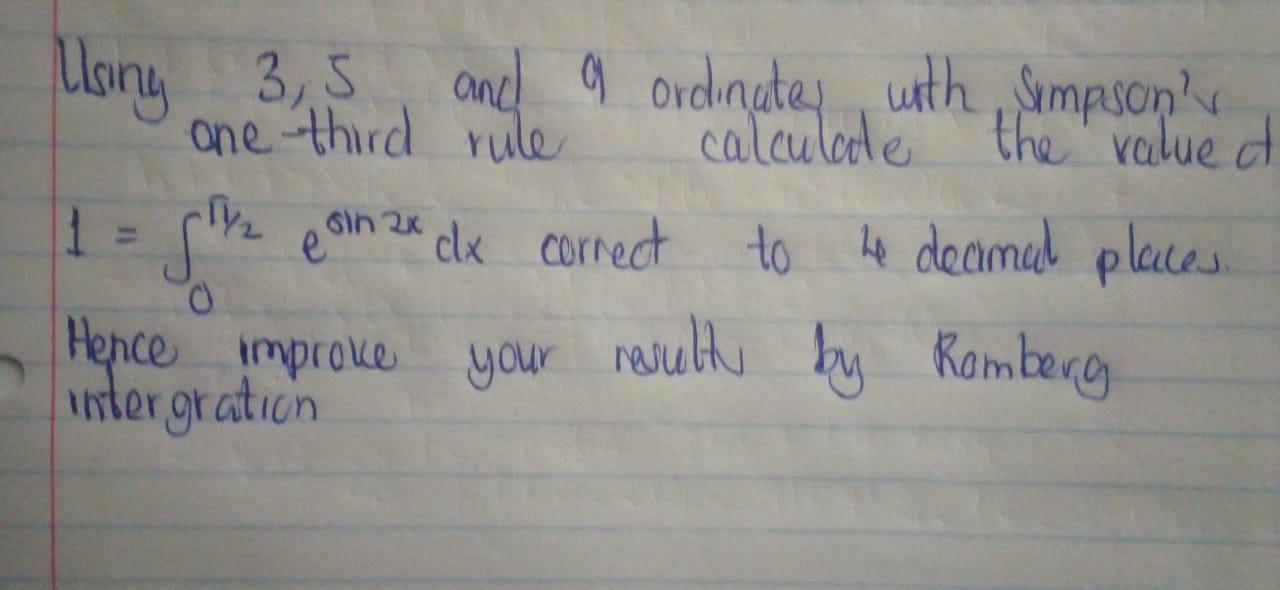 Using 3, 5 and 9 ordinates with Simpson's
one-third rule calculate the value of
I = ∫₀^π/2 e^sin 2x dx correct to 4 decimal places.
Hence improve your results by Romberg
intergration